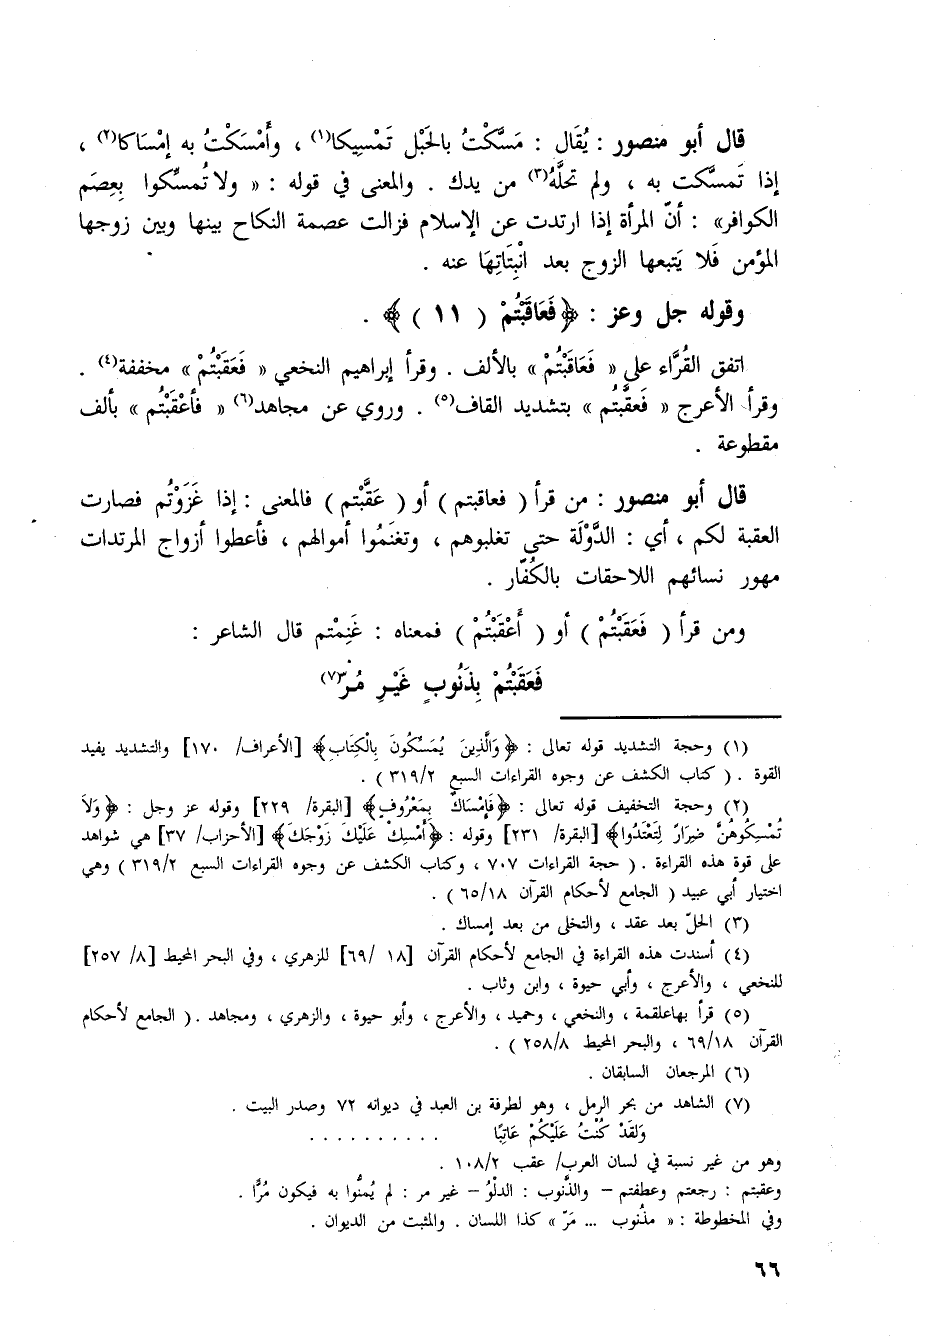 قال أبو منصور : يُقَال : مَسَّكْتُ بالحَبْل تَمْسِيكا(١) ، وأَمْسَكْتُ به إمْسَاكا(٢) ،
إذا تَمسَّكت به ، ولم تحلَّهُ(٣) من يدك . والمعنى في قوله : « ولا تُمسِّكوا بِعِصَم
الكوافر» : أنّ المرأة إذا ارتدت عن الإسلام فزالت عصمة النكاح بينها وبين زوجها
المؤمن فَلا يَتبعها الزوج بعد انْبِتَاتِهَا عنه .
وقوله جل وعز : ﴿فَعَاقَبْتُمْ ( ١١ )﴾ .
اتفق القُرَّاء على « فَعَاقَبْتُم » بالألف . وقرأ إبراهيم النخعي « فَعَقَبْتُمْ » مخففة(٤) .
وقرأ الأعرج « فَعقَّبْتُم » بتشديد القاف(٥) . وروي عن مجاهد(٦) « فأَعْقَبْتُم » بألف
مقطوعة .
قال أبو منصور : من قرأ ( فعاقبتم ) أو ( عَقَّبْتم ) فالمعنى : إذا غَزَوْتُم فصارت
العقبة لكم ، أي : الدَّوْلَة حتى تغلبوهم ، وتغنَمُوا أموالهم ، فأعطوا أزواج المرتدات
مهور نسائهم اللاحقات بالكُفّار .
ومن قرأ ( فَعَقَبْتُمْ ) أو ( أَعْقَبْتُمْ ) فمعناه : غَنِمْتم قال الشاعر :
فَعَقَبْتُمْ بِذَنُوبٍ غَيْرِ مُرّ(٧)
(١) وحجة التشديد قوله تعالى : ﴿وَالَّذِينَ يُمَسِّكُونَ بِالْكِتَابِ﴾ [الأعراف/ ١٧٠] والتشديد يفيد
القوة . ( كتاب الكشف عن وجوه القراءات السبع ٣١٩/٢ ) .
(٢) وحجة التخفيف قوله تعالى : ﴿فَإِمْسَاكٌ بِمَعْرُوفٍ﴾ [البقرة/ ٢٢٩] وقوله عز وجل : ﴿وَلاَ
تُمْسِكُوهُنَّ ضِرَارً لِتَعْتَدُوا﴾ [البقرة/ ٢٣١] وقوله : ﴿أَمْسِكْ عَلَيْكَ زَوْجَكَ﴾ [الأحزاب/ ٣٧] هي شواهد
على قوة هذه القراءة . ( حجة القراءات ٧٠٧ ، وكتاب الكشف عن وجوه القراءات السبع ٣١٩/٢ ) وهي
اختيار أبي عبيد ( الجامع لأحكام القرآن ٦٥/١٨ ) .
(٣) الحلّ بعد عقد ، والتخلى من بعد إمساك .
(٤) أسندت هذه القراءة في الجامع لأحكام القرآن [١٨ /٦٩] للزهري ، وفي البحر المحيط [٨/ ٢٥٧]
للنخعي ، والأعرج ، وأبي حيوة ، وابن وثاب .
(٥) قرأ بهاعلقمة ، والنخعي ، وحميد ، والأعرج ، وأبو حيوة ، والزهري ، ومجاهد . ( الجامع لأحكام
القرآن ٦٩/١٨ ، والبحر المحيط ٢٥٨/٨ ) .
(٦) المرجعان السابقان .
(٧) الشاهد من بحر الرمل ، وهو لطرفة بن العبد في ديوانه ٧٢ وصدر البيت .
وَلقَدْ كُنْتُ عَلَيْكُمْ عَاتِبًا . . . . . . . . . .
وهو من غير نسبة في لسان العرب/ عقب ١٠٨/٢ .
وعقبتم : رجعتم وعطفتم – والذَّنوب : الدلْوُ – غير مر : لم يُمنُّوا به فيكون مُرًّا .
وفي المخطوطة : « مذْنوب ... مَرّ » كذا اللسان . والمثبت من الديوان .
٦٦